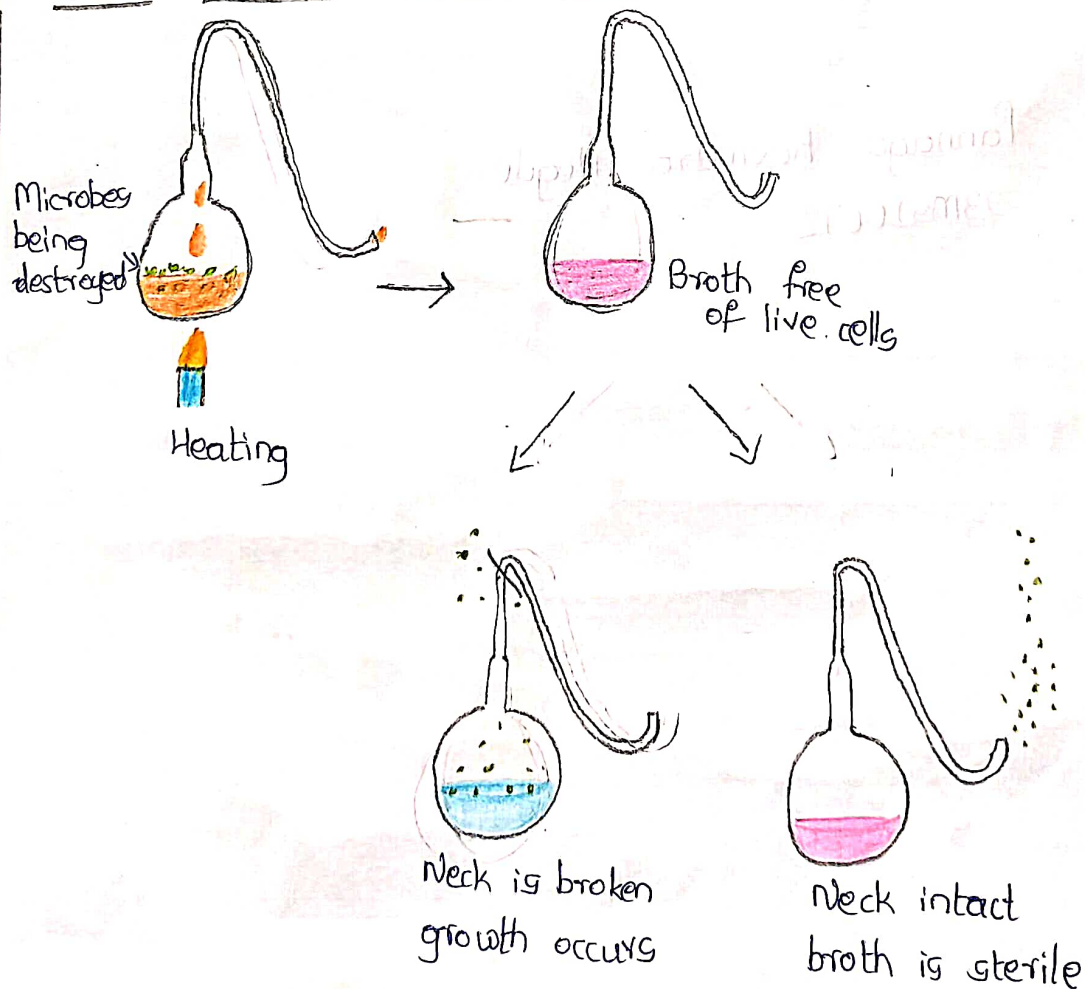 Microbes
being
destroyed
Heating
Broth free
of live cells
Neck is broken
growth occurs
Neck intact
broth is sterile